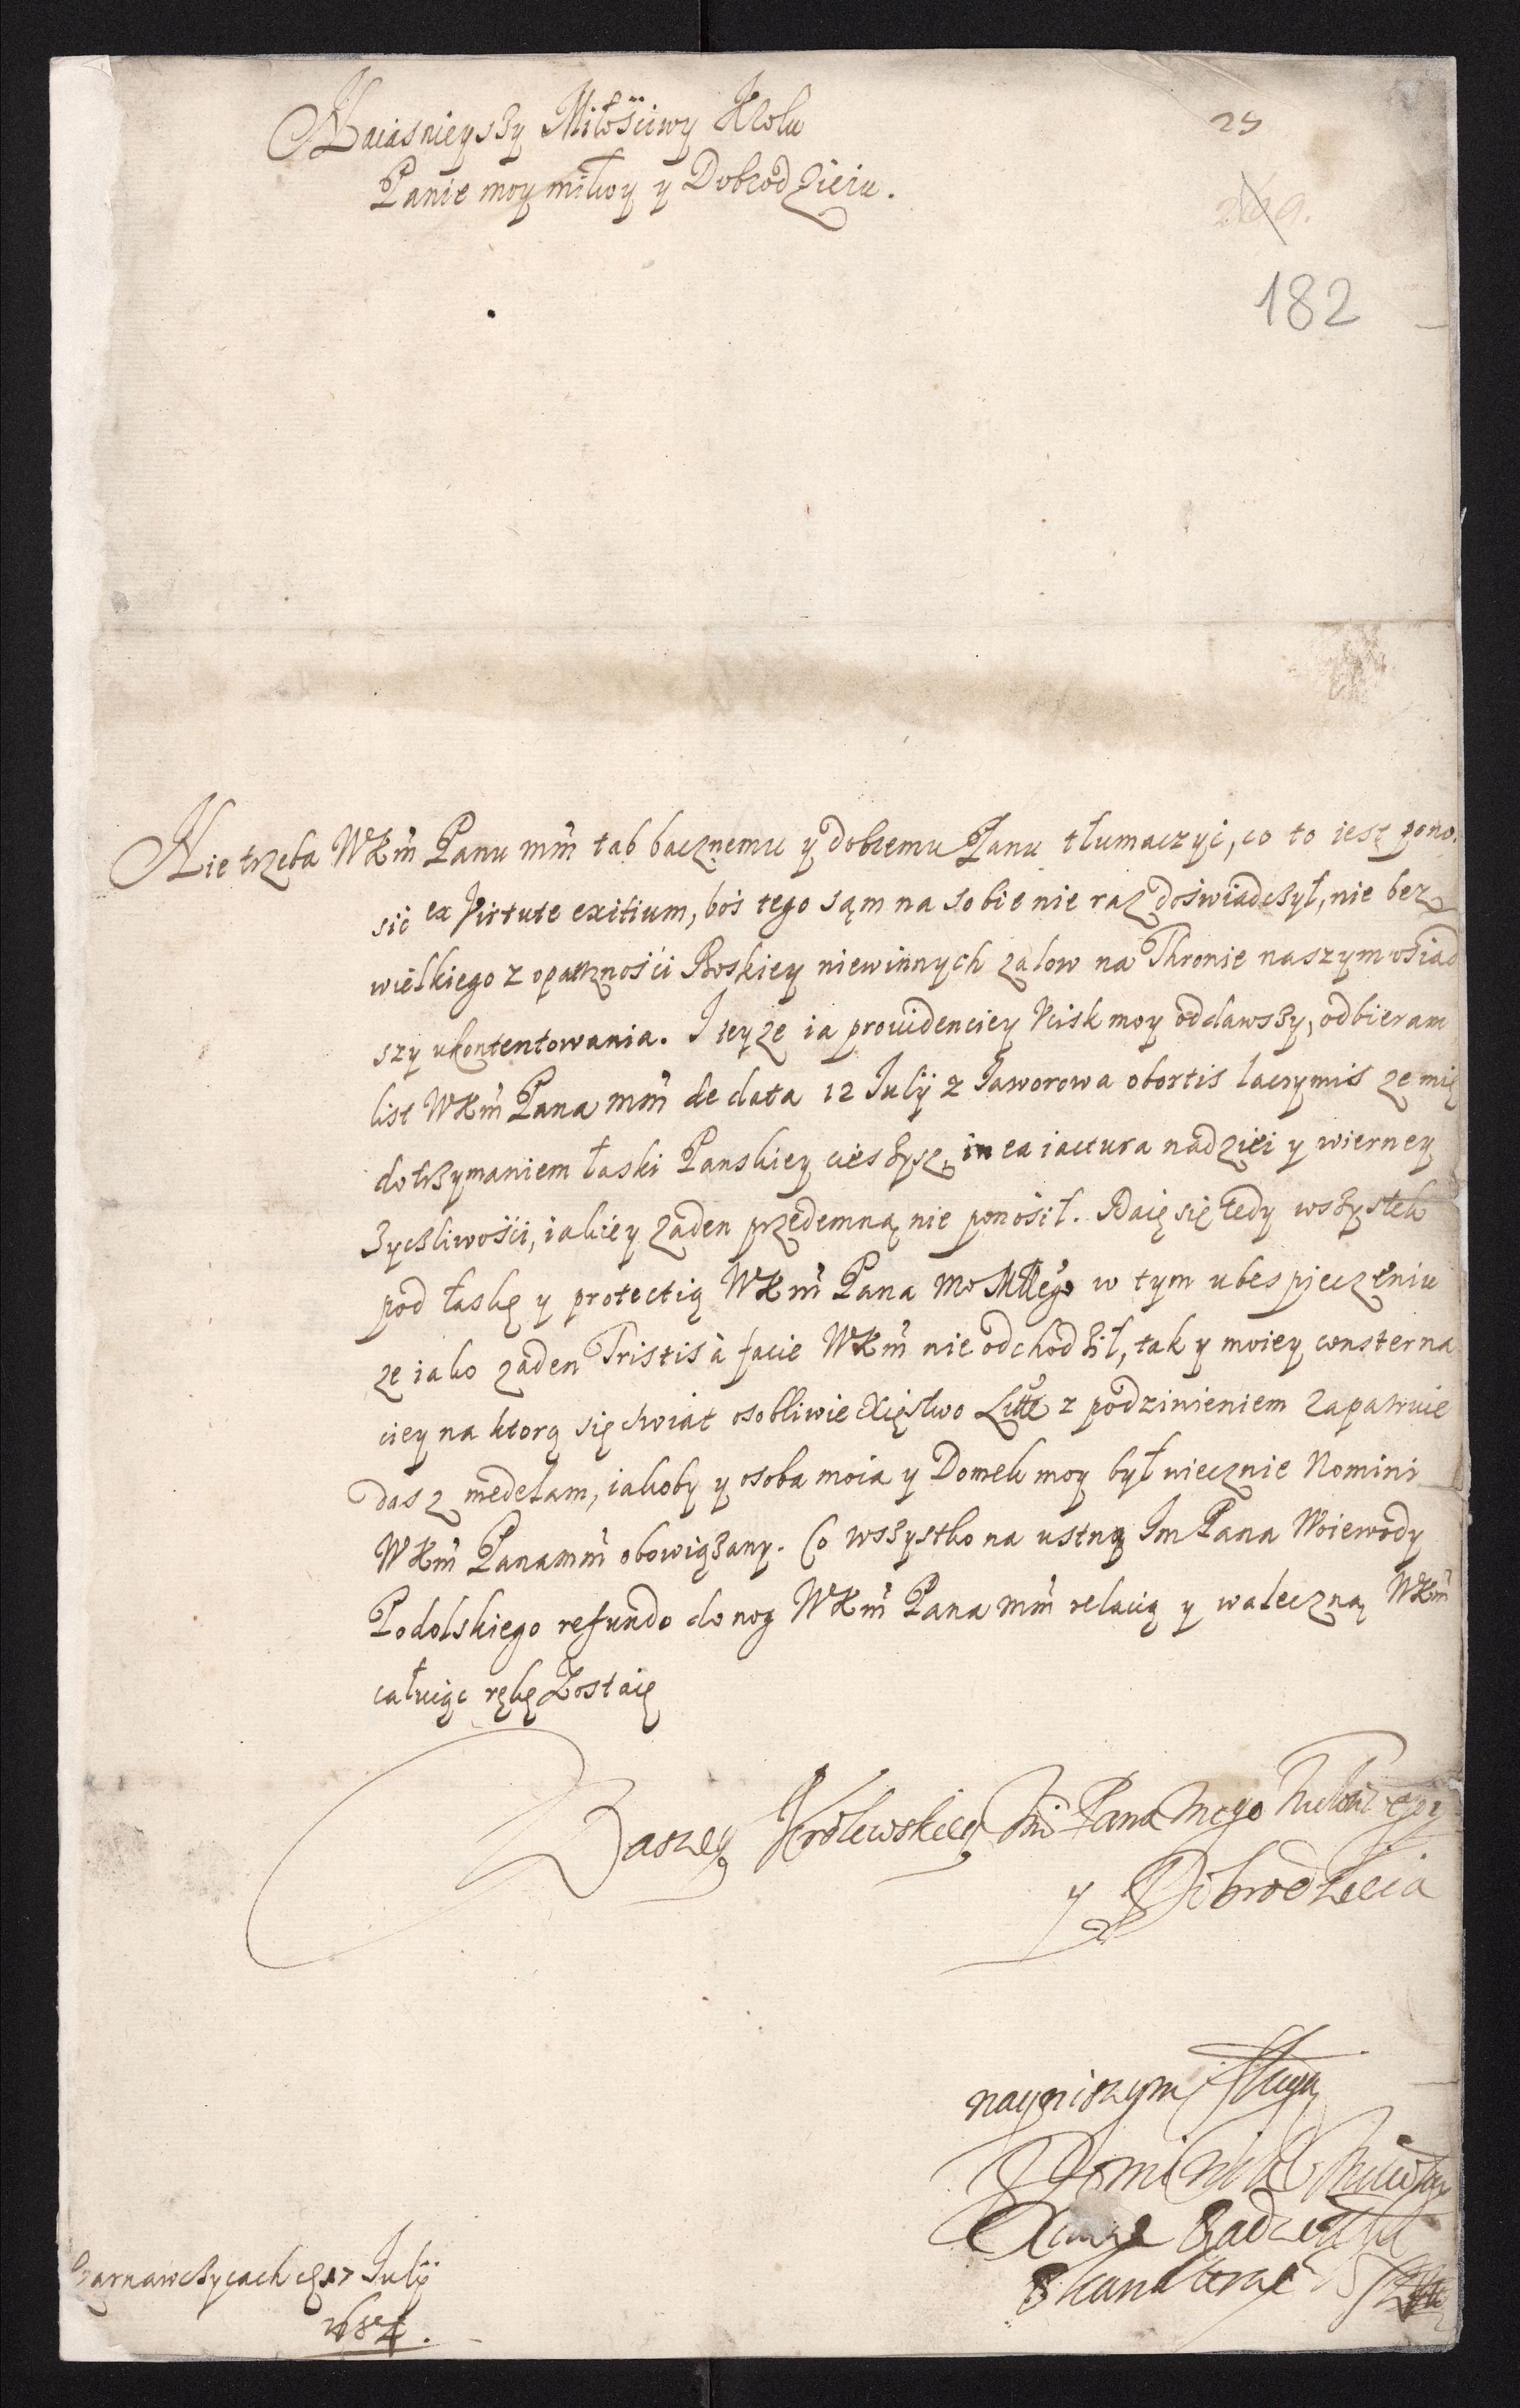 Naiasnieyszy Miłościwy Krolu
25
Panie moy miłwy y Dobrodzieiu.
249.
182
Nie trzeba WKm̃ Panu mm̃ tak bacznemu y dobremu Panu tłumaczyć, co to iest pono-
sić ex Virtute exitium, boś tego sąm na sobie nie raz doświadczył, nie bez
wielkiego z opatrzności Boskiey niewinnych zalow na Thronie naszym osiad
szy ukontentowania. Teyze ia providenciey Ucisk moy oddawszy, odbieram
list WKm̃ Pana mm̃ de data 12 July z Jaworowa obortis lacrymis ze mię
dotrzymaniem łaski Panskiey cieszysz, in ea iactura nadziei y wierney
zyczliwości, iakiey zaden przedemną nie ponosił. Udaię się tedy wszystek
pod łaskę y protectią WKm̃ Pana Mo Młłego w tym ubespieczeniu
ze iako zaden Tristis à facie WKm̃ nie odchodził, tak y moiey consterna
ciey na ktorą się swiat osobliwie Xięstwo Litt z podziwieniem zapatruie
dasz medelam, iakoby y osoba moia y Domek moy był wiecznie Nomini
WKm̃ Panamm̃ obowiązany. Co wszystko na ustną Jm Pana Woiewody
Podolskiego refundo do nog WKm̃ Pana mm̃ relacią y waleczną WKm̃
całuiąc rękę Zostaię
Waszey Krolewskiey Mci Pana mego
y Dobrodzieia
nayniszym sługą
Dominik Mikołay
Xiąze Radziwił
Podkanclerzy
Czarnawczycach d 17 July
1684.